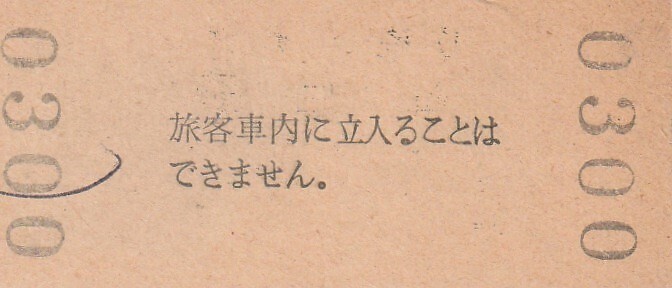 0300
旅客車内に立入ることは
できません。
0300